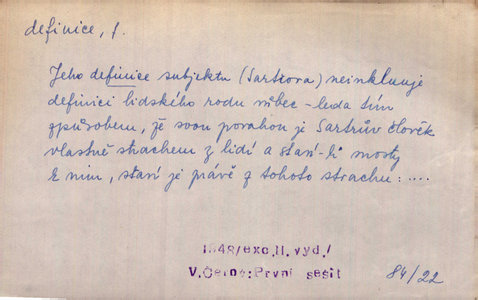 definice, f.
Jeho definice subjektu (Sartrova) neinkluuje
definici lidského rodu vůbec - leda tím
způsobem, že svou povahou je Sartrův člověk
vlastně strachem z lidí a staví-li mosty
k nim, staví je právě z tohoto strachu: ....
1948/exc.II.vyd./
V.Černý:První sešit
84/22